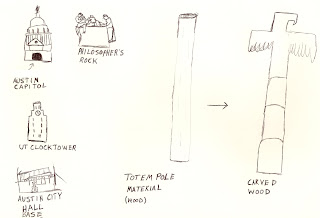 AUSTIN
CAPITOL
PHILOSOPHER'S
ROCK
UT CLOCKTOWER
AUSTIN CITY
HALL
BASE
TOTEM POLE
MATERIAL
(WOOD)
CARVED
WOOD